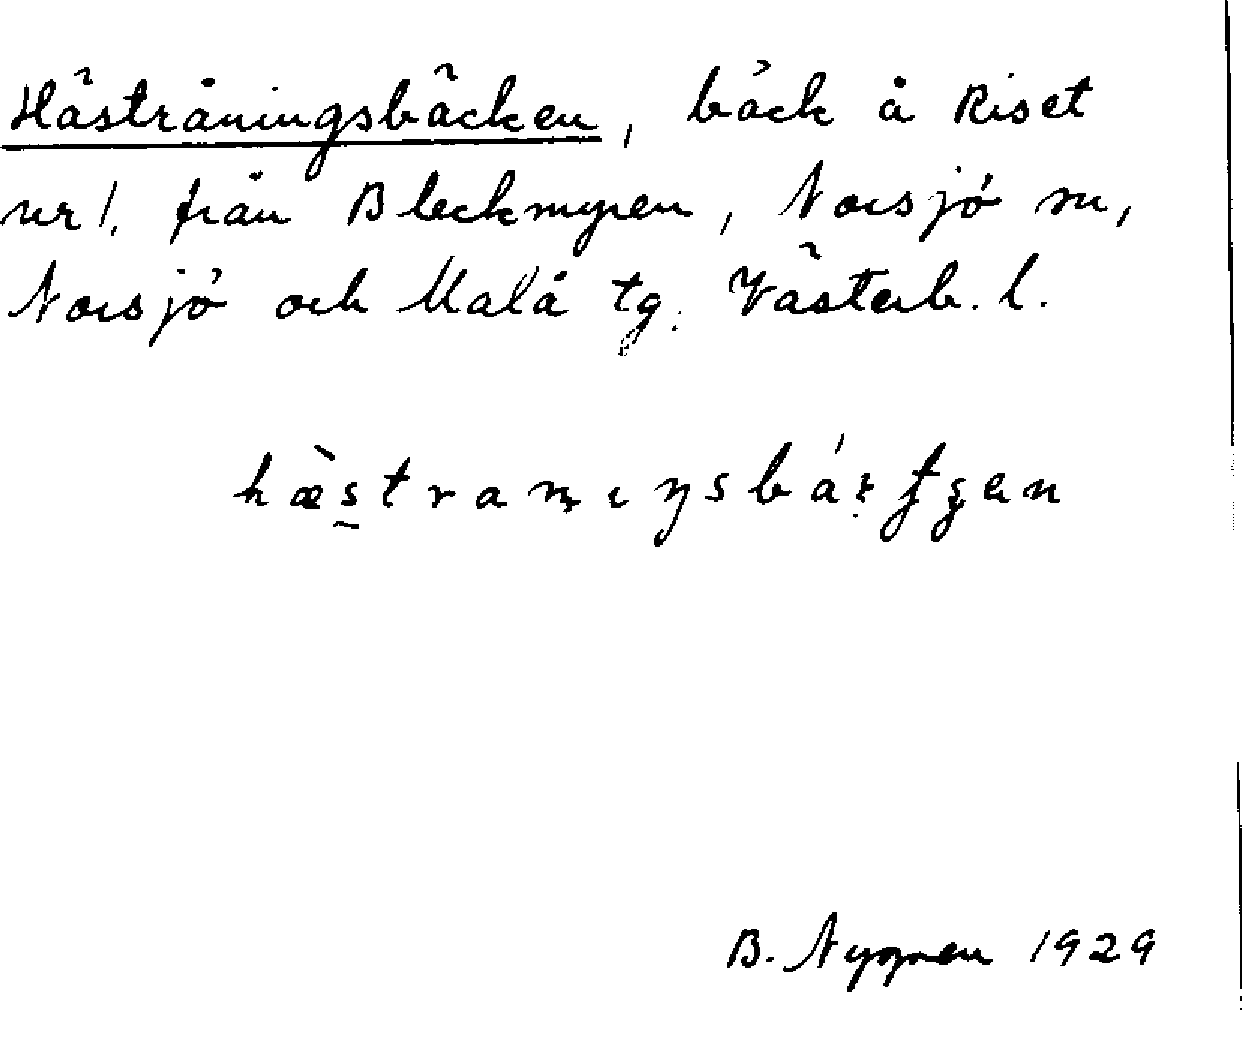 Hästråningsbäcken, bäck å Riset
nr 1. från Bleckmyren, Norsjö sn,
Norsjö och Malå tg. Västerb. l.
B. Nygren 1929